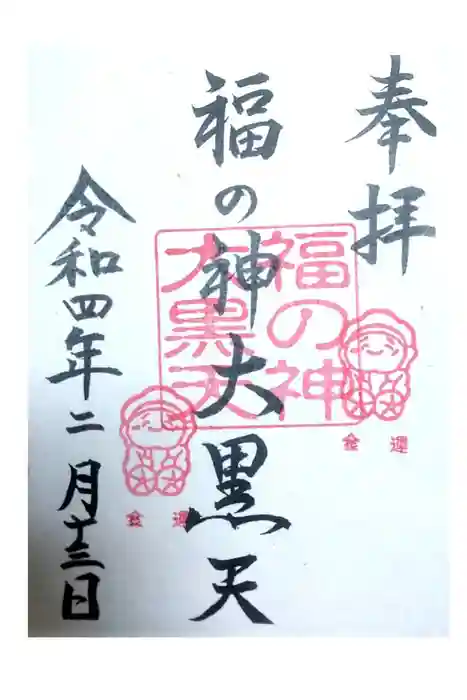 奉拝
福の神大黒天
令和四年二月十三日
福の神
大黒天
金運
金運